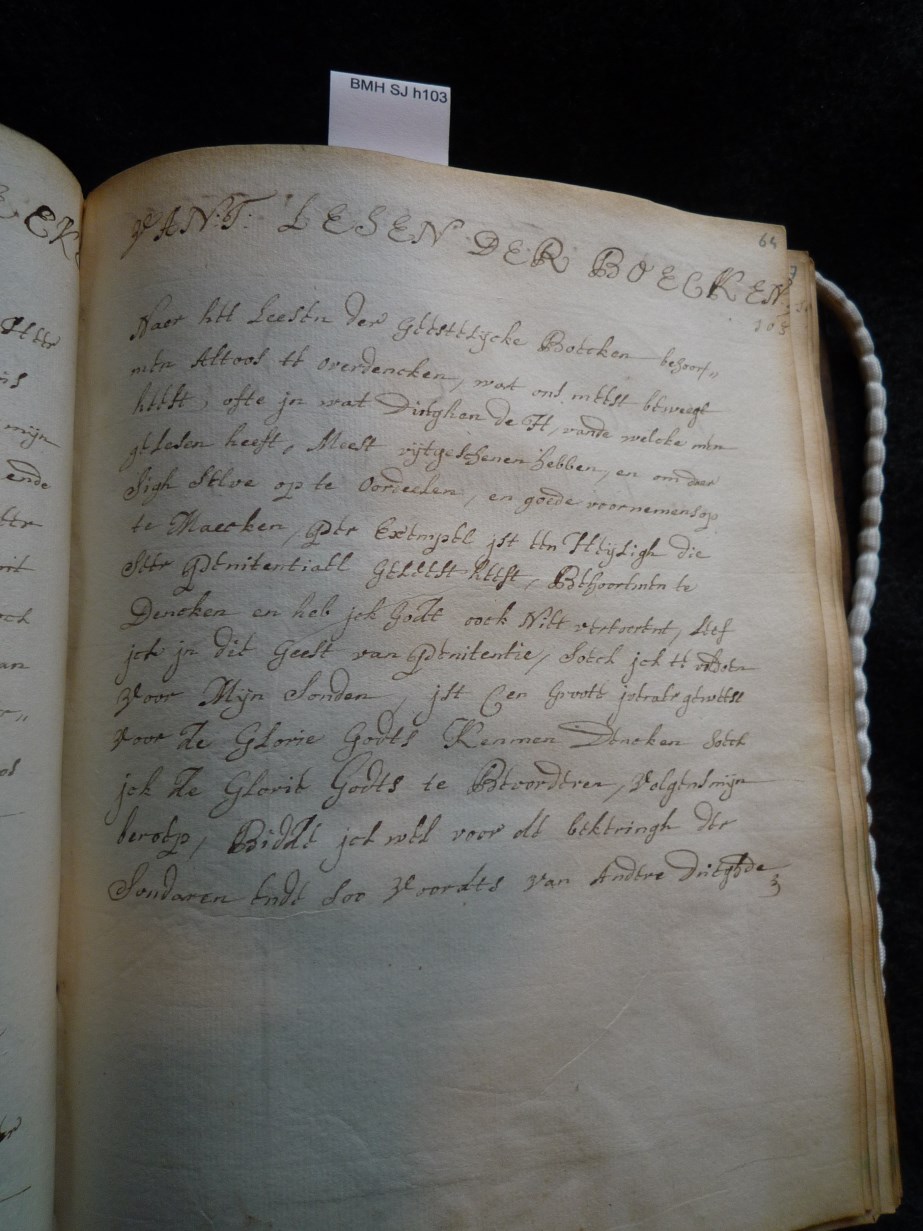 BMH SJ h103
64
VAN.T. LESEN DER BOECKEN.
105
Naer het Leesen der Geestelijcke Boecken behoort„
men Altoos te overdencken, wat ons meest beweegt
heeft, ofte jn wat Dinghen de H, vande welcke men
gelesen heeft, Meest uijtgeschenen hebben, en om daer
Sigh Selve op te Oordeelen, en goede voornemens op
te Maecken, Per Exempel jst een Heijligh die
Seer Penitentiael Geleeft heeft, Behoortmen te
Dencken en heb jck Godt oock Niet vertoernt, Leef
jck jn dit Geest van Penitentie, Soeck jck te
Voor Mijn Sonden, jst Een Groote geweest
Voor De Glorie Godts Kennen Dencken Soeck
jck De Glorie Godts te Bevorderen, Volgens mijn
beroep, Bidde jck wel voor de bekeringh der
Sondaren Ende Soo Voordts Van Andere Deughde
EK
mijn
ende